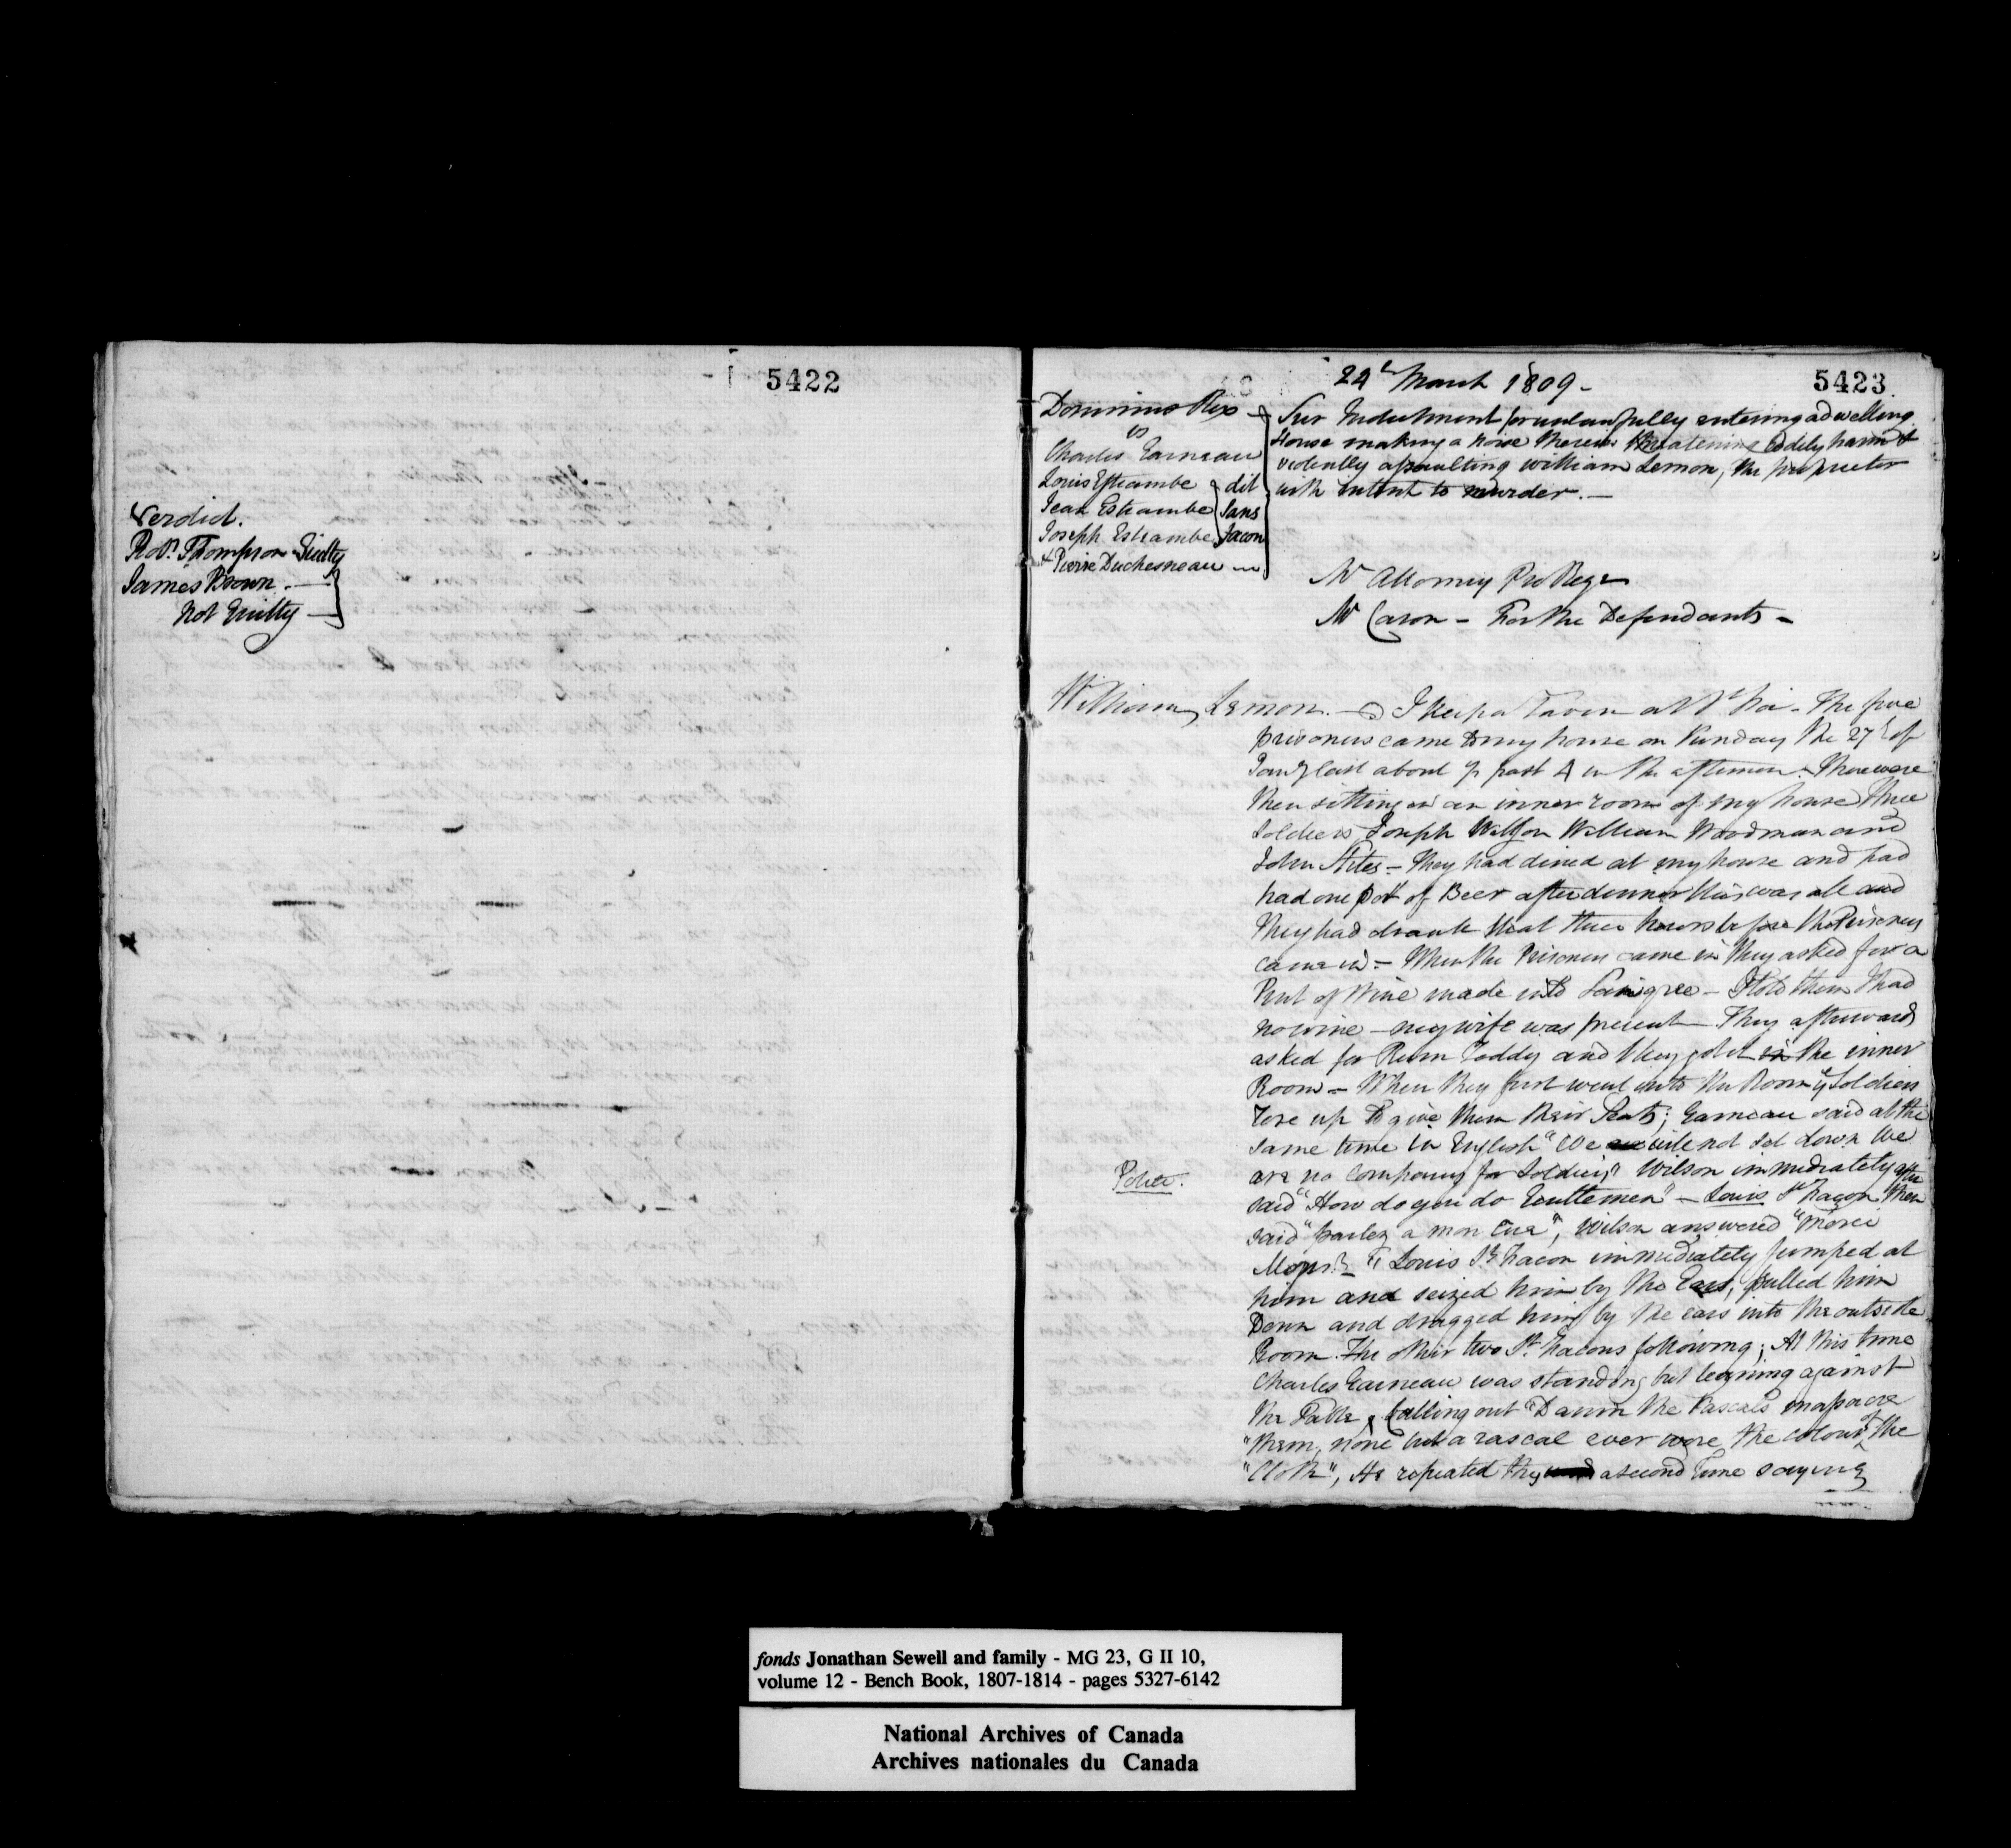 5422
Verdict.
Rob. Thompson Guilty
James Brown. —
Not Guilty —
5423
24 March 1809 -
Dominus Rex
vs
Charles Garneau
Louis Estrambe
Jean Estrambe
Joseph Estrambe
& Pierre Duchesneau
dit
Sans
facon
Sur Indictment for unlawfully entering a dwelling
House making a noise therein threatening bodily harm &
violently assaulting William Lemon, the proprietor
with intent to murder. —
Mr Attorney Pro Rege
Mr Caron - For the Defendants -
William Lemon. — I keep a Tavern at The five
prisoners came to my house on Sunday the 27 of
last about ½ past 4 in the afternoon - There were
then sitting in an inner room of my house three
Soldiers Joseph Wilson William Woodman and
John - They had dined at my house and had
had one pot of Beer after dinner this was all and
they had drank that three hours before the Prisoners
came in - When the Prisoners came in they asked for a
Pint of Wine made into Saingree - I told them I had
no wine - my wife was present - They afterwards
asked for Rum Toddy and they got it in the inner
Room - When they first went into the Room ye Soldiers
rose up to give them their Seats; Garneau said at the
same time in English "We will not set down We
are no company for Soldiers" Wilson immediately
Polite.
said "How do you do Gentlemen" - Louis St facon then
said "parlez a mon ", Wilson answered "Merci
Monsr - " Louis Ss facon immediately jumped at
him and seized him by the Ears, pulled him
Down and dragged him by the ears into the outside
Room. The other two Ss facons following; At this time
Charles Garneau was standing but leaning against
the Table, Calling out "Damn the Rascals massacre
"them, none but a rascal ever wore the colour of the
"Cloth", He repeated this a second Time saying
fonds Jonathan Sewell and family - MG 23, G II 10,
volume 12 - Bench Book, 1807-1814 - pages 5327-6142
National Archives of Canada
Archives nationales du Canada